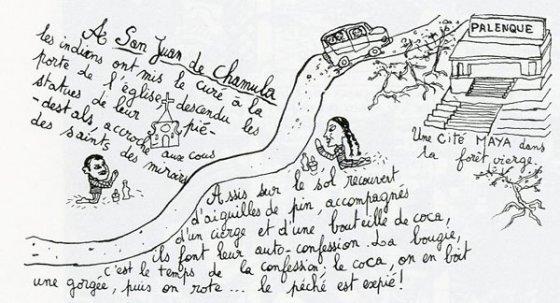 A San Juan de Chamula
les indiens ont mis le curé à la
porte de l'église, descendu les
statues de leur pié-
-destals accroché aux cous
des saints des miroirs
PALENQUE
Une Cité MAYA dans
la forêt vierge.
Assis sur le sol recouvert
d'aiguilles de pin, accompagnés
d'un cierge et d'une bouteille de coca,
ils font leur auto-confession. La bougie,
c'est le temps de la confession, le coca, on en boit
une gorgée, puis on rote... le péché est expié!